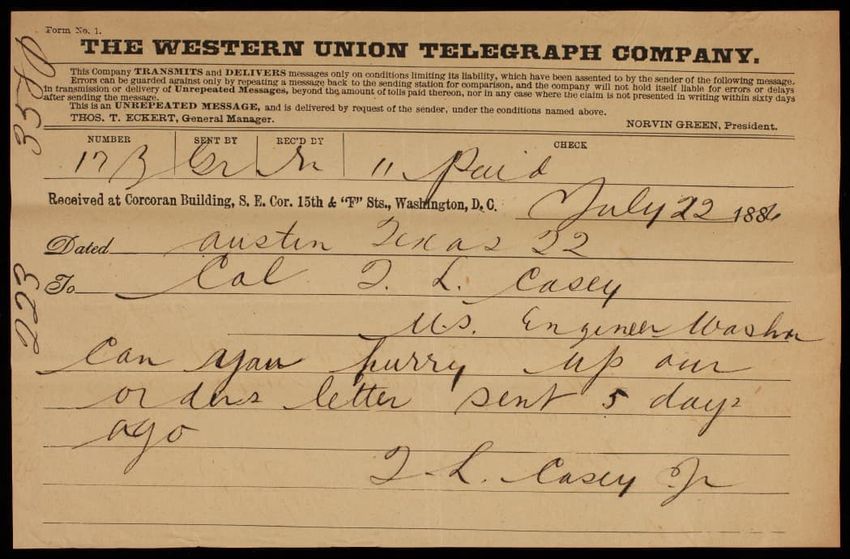 Form No. 1.
THE WESTERN UNION TELEGRAPH COMPANY.
This Company TRANSMITS and DELIVERS messages only on conditions limiting its liability, which have been assented to by the sender of the following message.
Errors can be guarded against only by repeating a message back to the sending station for comparison, and the company will not hold itself liable for errors or delays
in transmission or delivery of Unrepeated Messages, beyond the amount of tolls paid thereon, nor in any case where the claim is not presented in writing within sixty days
after sending the message.
This is an UNREPEATED MESSAGE, and is delivered by request of the sender, under the conditions named above.
THOS. T. ECKERT, General Manager.
NORVIN GREEN, President.
NUMBER SENT BY REC'D BY CHECK
11 Paid
Received at Corcoran Building, S. E. Cor. 15th & "F" Sts., Washington, D. C. July 22 1886
Dated Austin Texas 22
To Col T. L. Casey
U.S. Engineer Washn
Can you hurry up our
orders letter sent 5 days
ago
T. L. Casey Jr
223